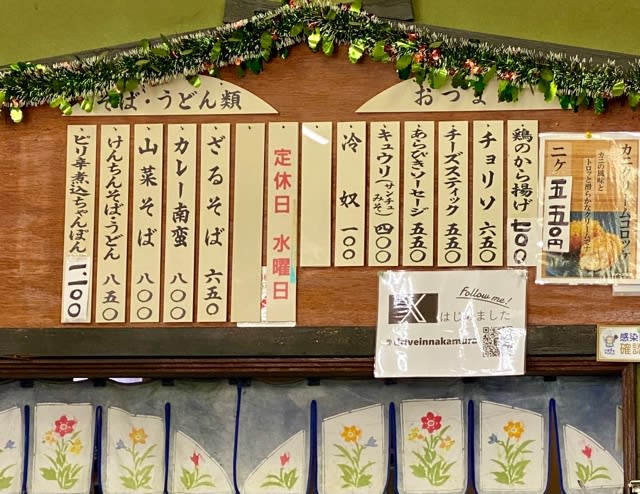 そば・うどん類
おつま
ざるそば 六五〇
カレー南蛮 八〇〇
山菜そば 八〇〇
けんちんそば・うどん 八五〇
ピリ辛煮込ちゃんぽん 一、一〇〇
定休日 水曜日
鶏のから揚げ 七〇〇
チョリソ 六五〇
チーズスティック 五五〇
あらびきソーセージ 五五〇
キュウリ(サンチュみそ) 四〇〇
冷奴 一〇〇
カニクリームコロッケ
カニの風味と
トロッと滑らかなクリーム
二ヶ 五五〇円
Follow me!
X はじめました
@driveinnakamura
感染
確認